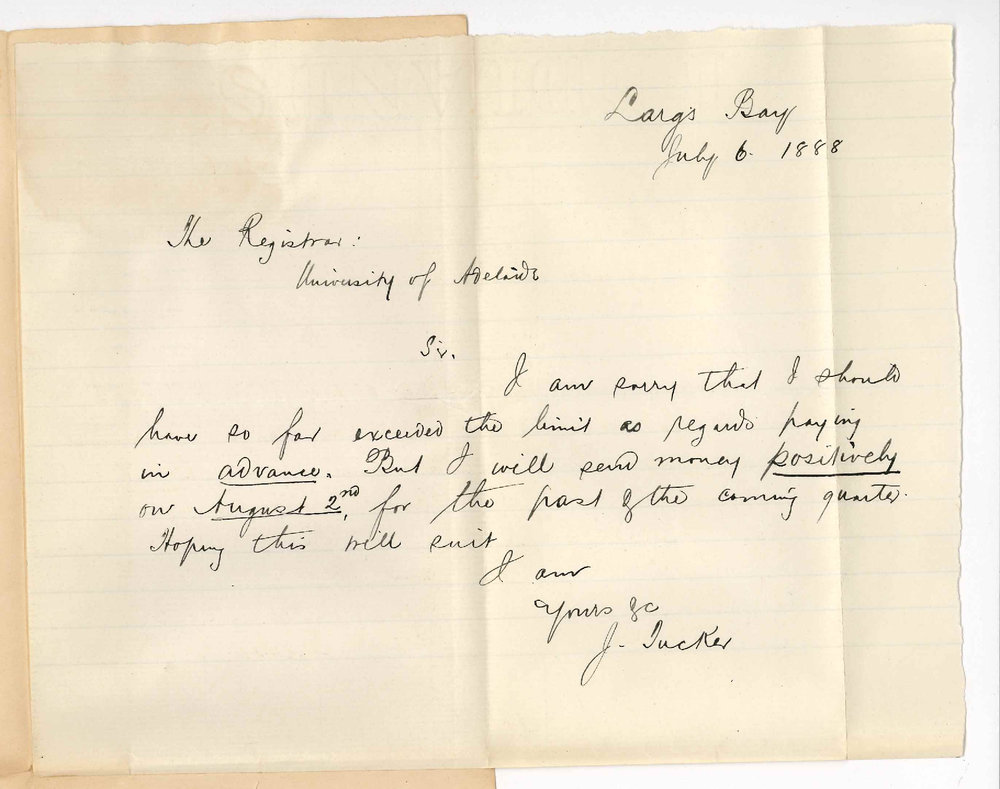 Largs Bay
July 6. 1888
The Registrar:
University of Adelaide
Sir.
I am sorry that I should
have so far exceeded the limit as regards paying
in advance. But I will send money positively
on August 2nd, for the past & the coming quarter.
Hoping this will suit
I am
Yours &c
J. Tucker